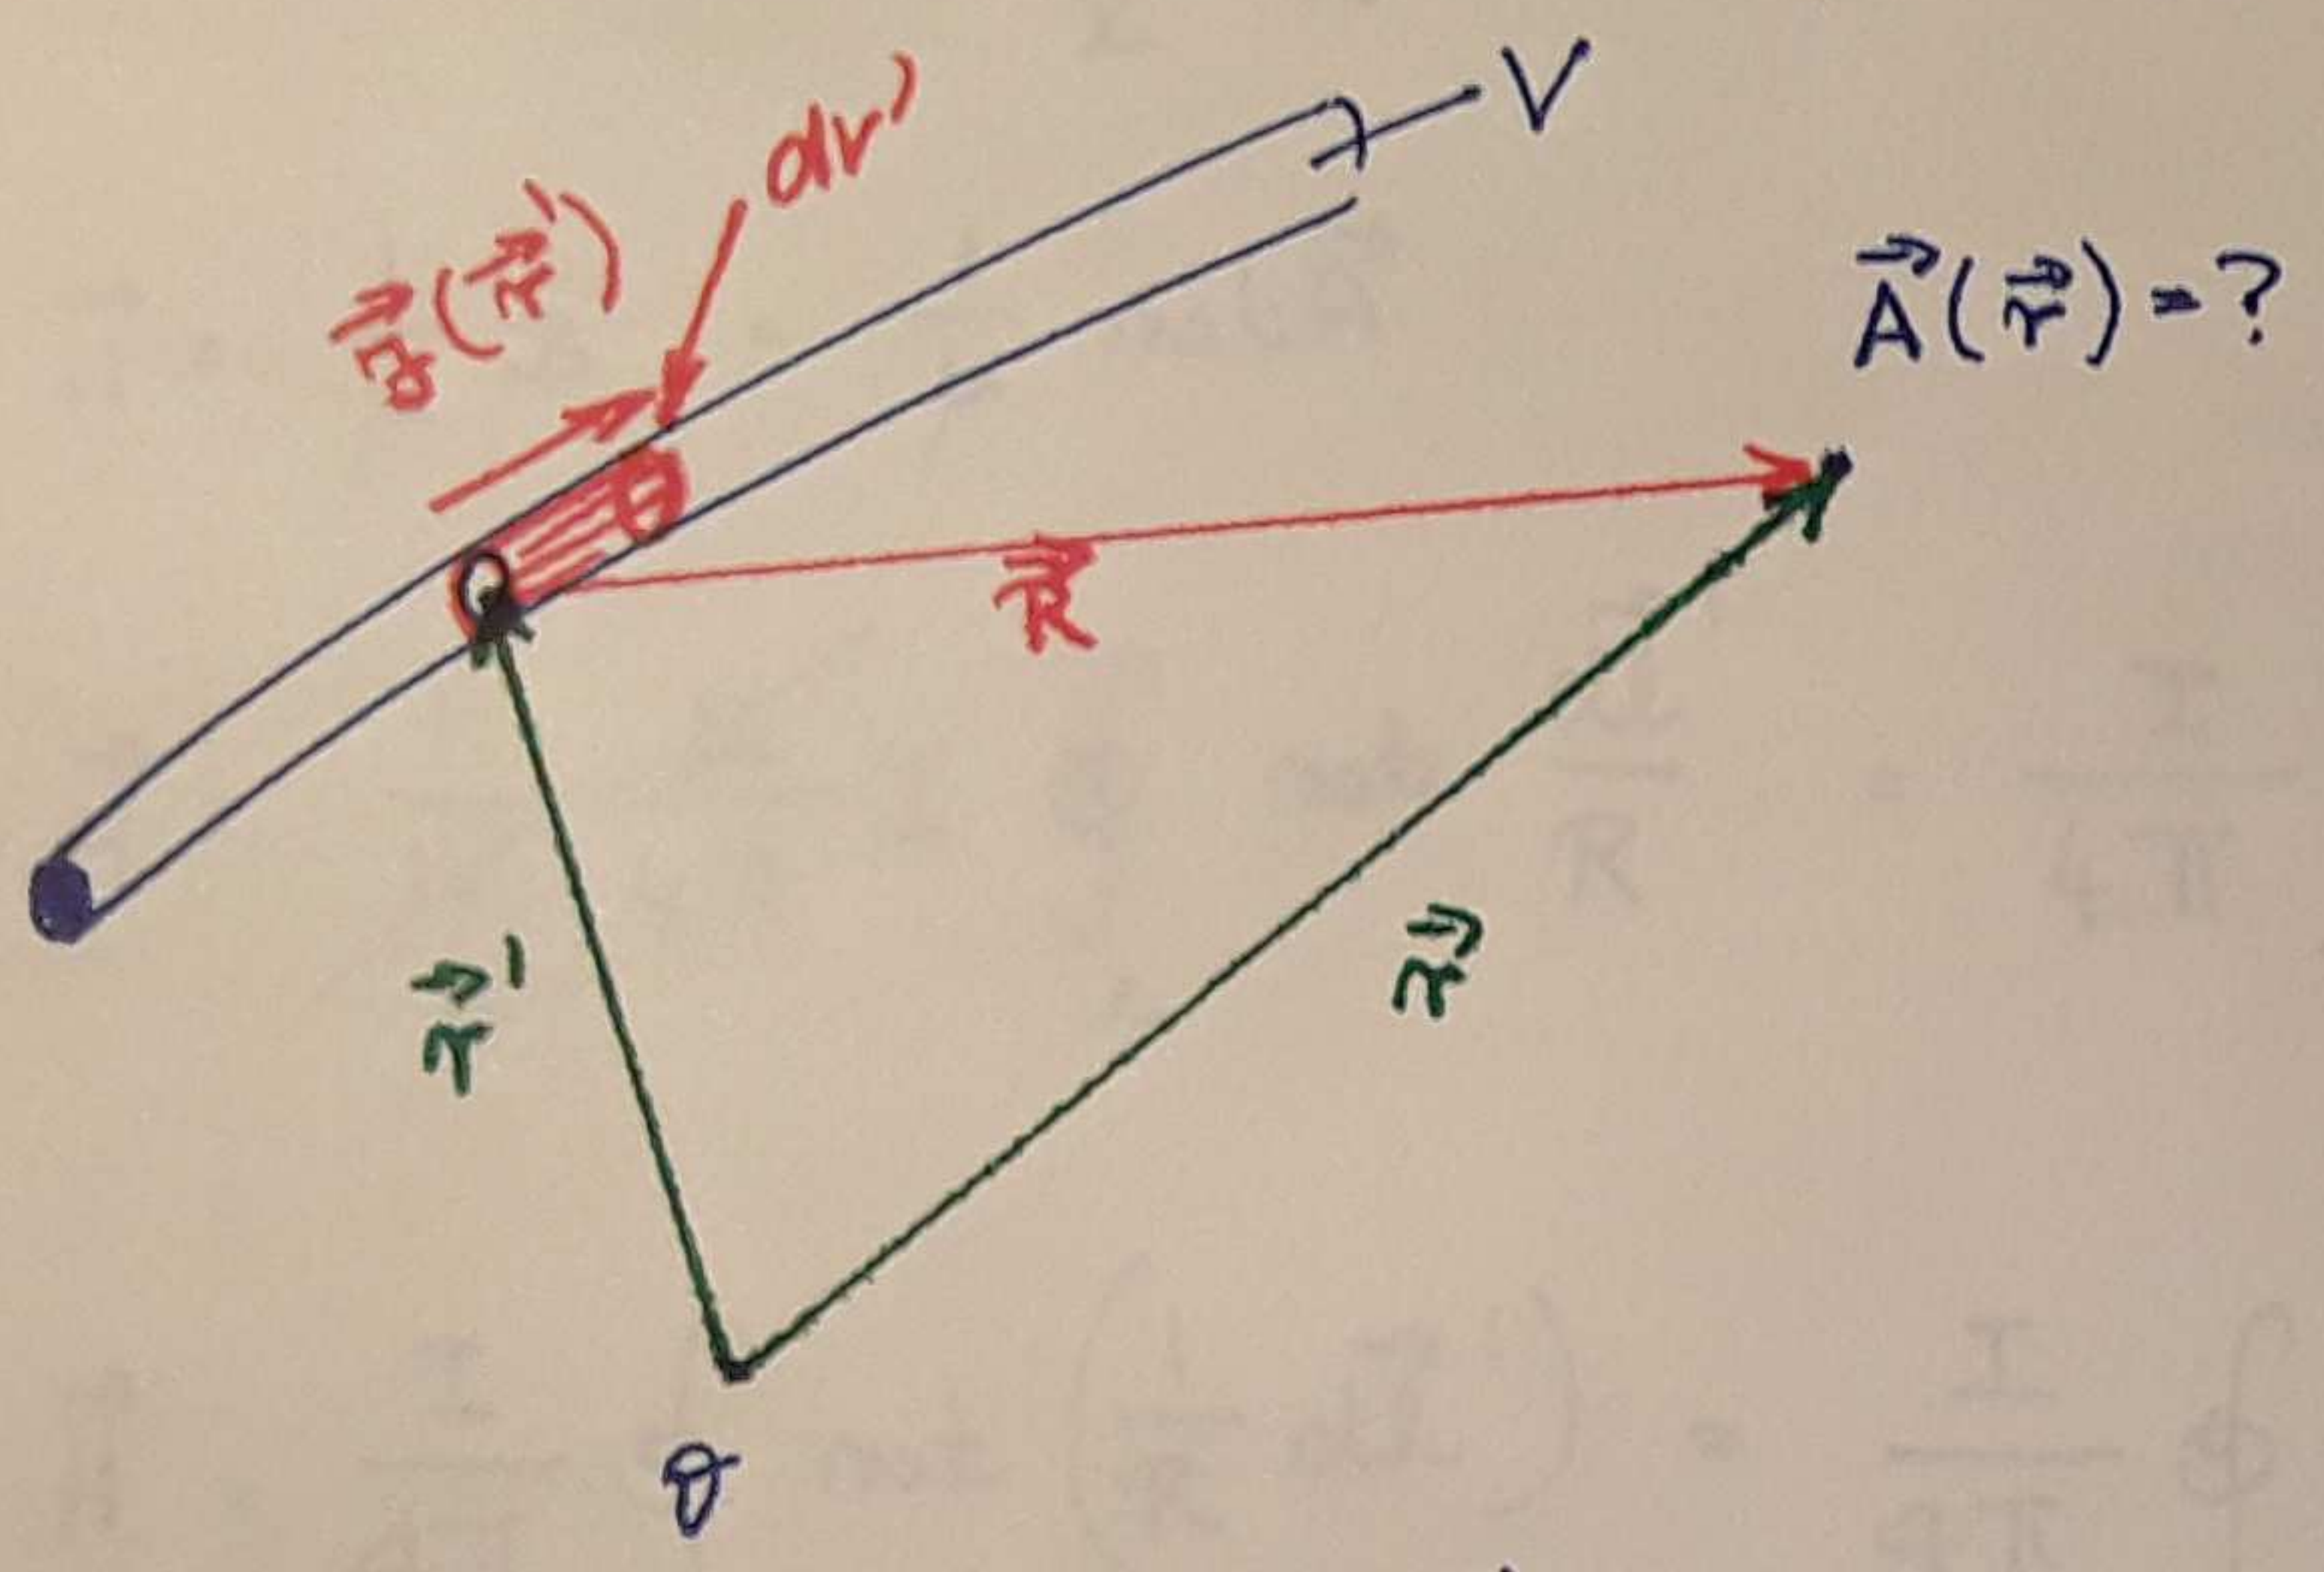 V
dv'
g⃗(r⃗')
A⃗(r⃗) = ?
R⃗
r⃗'
r⃗
O